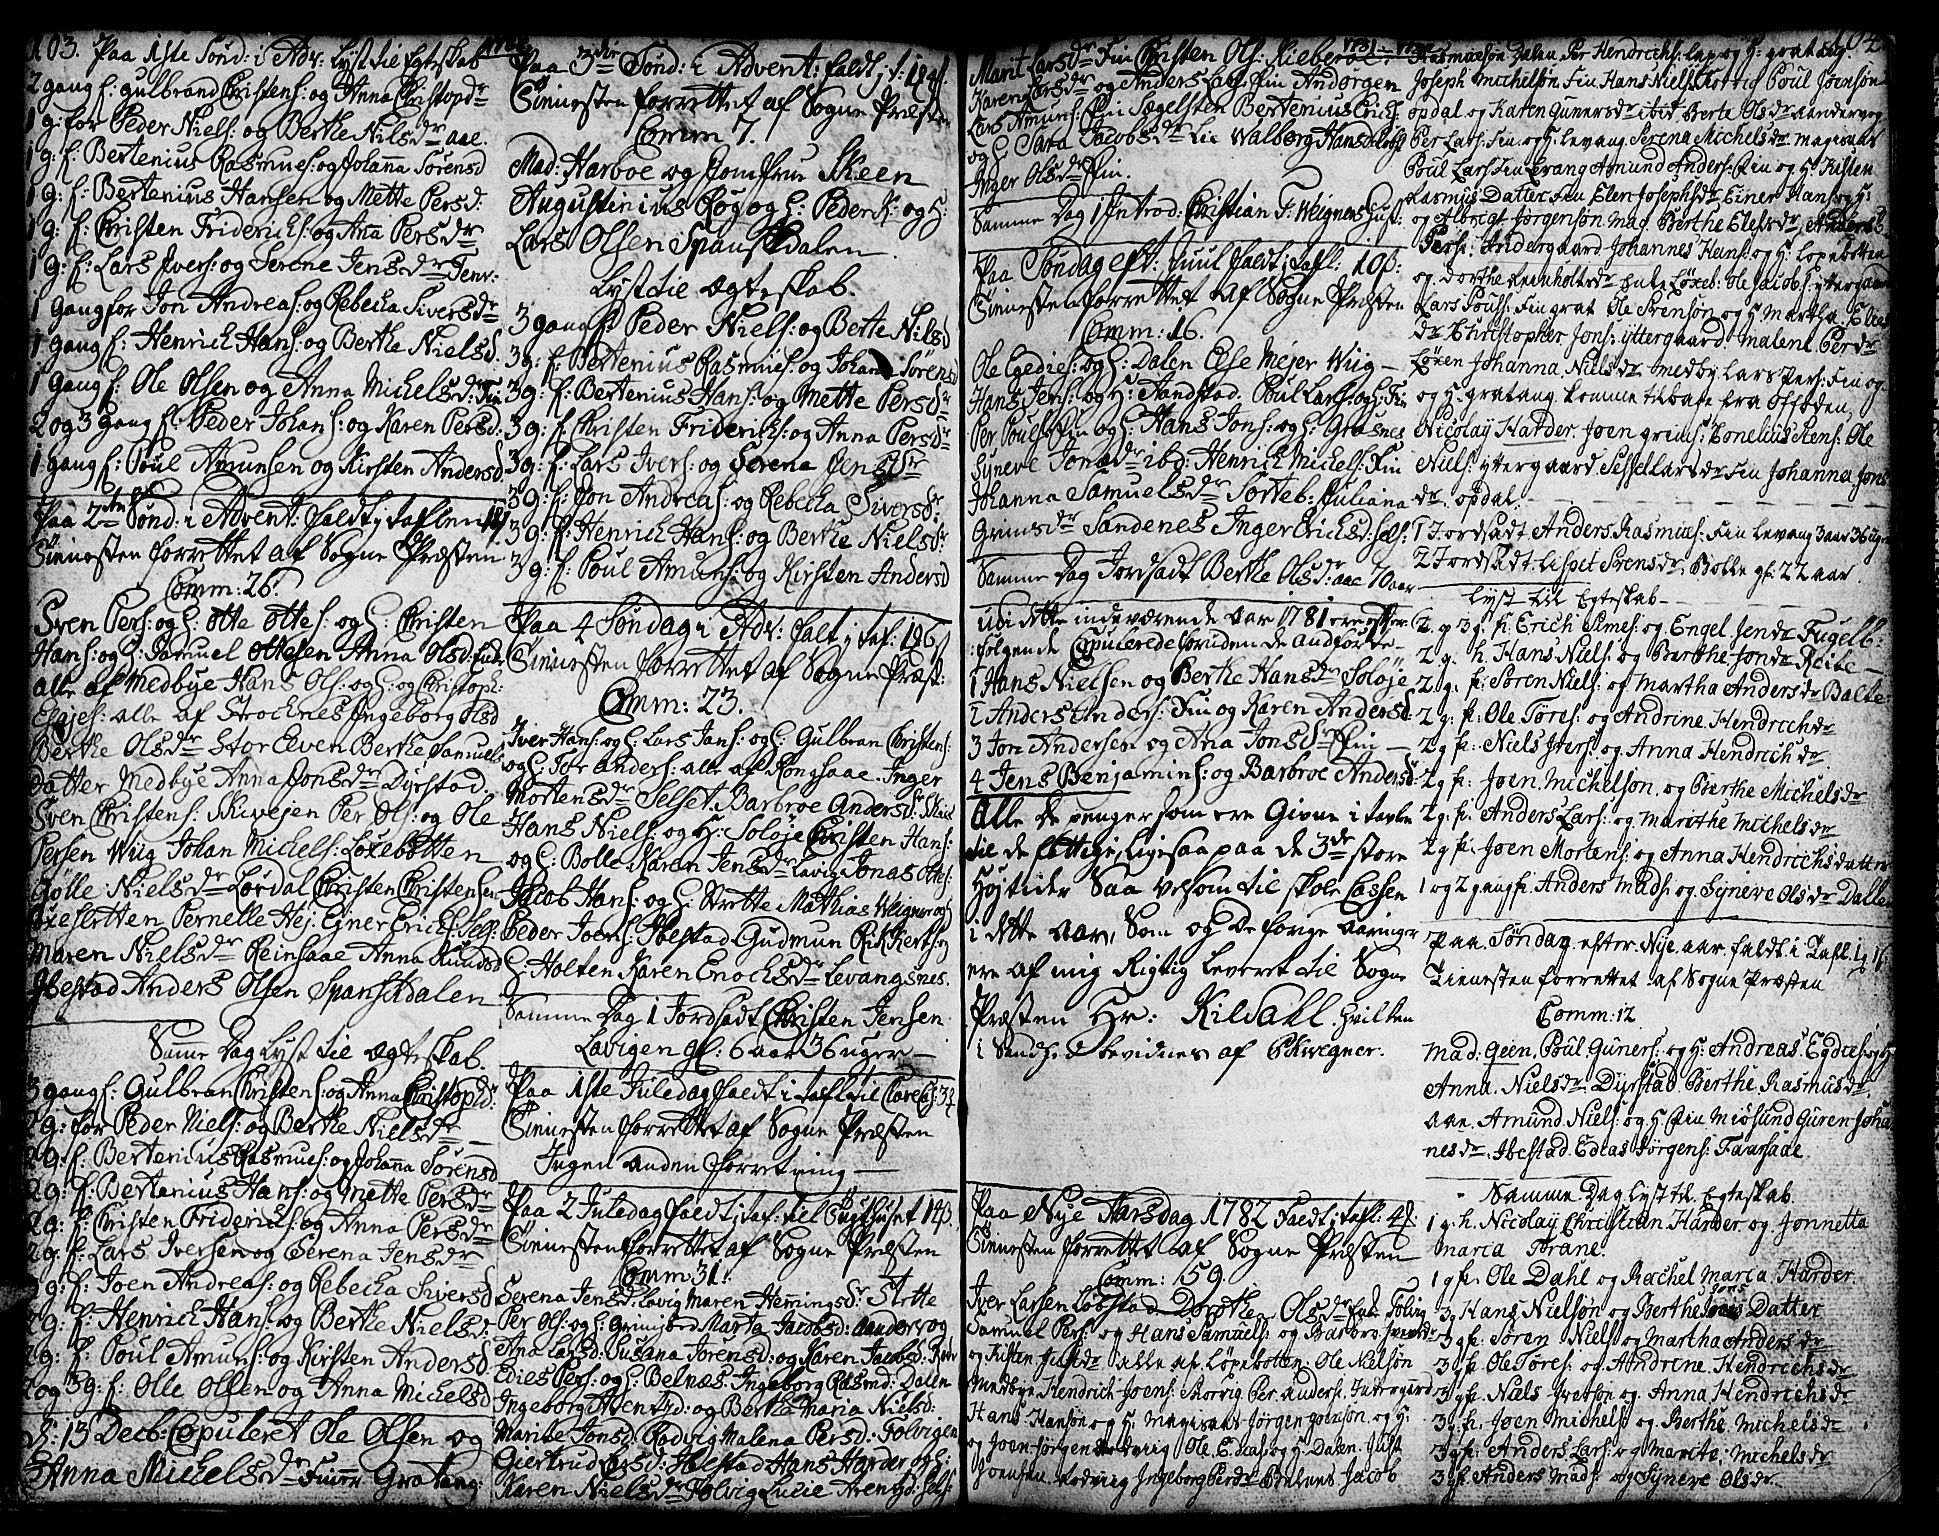 103. Paa 1ste Sönd: i Adv: Lyst til Egteskab
2 gang f: Gulbrand Christens: og Anna Christopdr
1 g: for Peder Niels: og Berthe Nilsdr aae.
1 g: f: Bertenius Rasmus: og Johanna Sörensd
1 g: f: Bertenius Hansen og Mette Persd:
1 g: f: Christen Friderichs: og Anna Persdr
1 g: f: Lars Ivers: og Serene Jensdr Tenv:
1 gang for Jon Andreas: og Rebecka Siversdr
1 gang f: Henrich Hans: og Berthe Nielsd.
1 Gang f: Ole Olsen og Anna Michelsd: Fin
2 og 3 gang f: Peder Johans: og Karen Persd.
1 gang f: Poul Amunsen og Kirsten Andersd
Paa 2den Sönd: i Advent: faldt i taflen
Tienesten forrettet af Sogne Præsten
Comm: 26.
Sven Pers: og H: Otte Ottes: og H: Christen
Hans: og H: Samuel Ottesen Anna Olsd: Enke
alle af Medbye Hans Ols: og H: og Christoph:
alle af Strocknes Ingeborg Olsd
Berthe Olsdr Stor Elven Berthe Samuels
Datter Medbye Anna Jonsdr Dyrstad.
Sven Christens: Per Ols: og Ole
Persen Wiig Johan Michels: Löxebotten
Gölle Nielsdr Lördal Christen Christensen
Pernelle Hej: Egner Erichs: Seg:
Maren Nielsdr Reinsaae Anna Knudsd
Ibestad Anders Olsen Spansdalen
Samme Dag Lyst til Ægteskab.
3 gang f: Gulbran Christens: og Anna Christopdr:
2 g: for Peder Niels: og Berthe Nielsdr
2 g: f: Bertenius Rasmus: og Johanna Sörensd
2 g: f: Bertenius Hans: og Mette Persdr
2 g: f: Christen Friderichs: og Anna Persdr
2 g: f: Lars Iversen og Serena Jensdr
2 g: f: Joen Andreas: og Rebecka Siversd
2 g: f: Henrich Hans: og Berthe Nielsd:
2 g: f: Poul Amuns: og Kirsten Andersd
2 og 3 g: f: Olle Olsen og Anna Michelsd
d: 13 Decb: Copuleret Ole Olsen og
Anna Michelsdr Finner Gratang:
Paa 3die Sönd: i Advent: faldt i t:
Tienesten forrettet af Sogne Præsten
Comm 7.
Mad: Harboe og Jomfrue Skeen
Augustinius Rog og H: Peder K: og H:
Lars Olsen Spanskdalen
Lyst til Ægteskab
3 gang f: Peder Niels: og Berte Nilsd
3 g: f: Bertenius Rasmus: og Johan Sörensd
3 g: f: Bertenius Hans: og Mette Persdr
3 g: f: Christen Friderichs: og Anna Persdr
3 g: f: Lars Ivers: og Serena Jensdr
3 g: f: Jon Andreas: og Rebecka Siversdr:
3 g: f: Henrich Hans: og Berthe Nielsdr:
3 g: f: Poul Amuns: og Kirsten Andersd
Paa 4 Söndag i Adv: falt i taf: 196
Tienesten forrettet af Sogne Præst:
Comm: 23.
Iver Hans: og H: Lars Jans: og H: Gulbran Christens:
og H: Jor Anders: alle af Rongsaae. Inger
Mortensdr Selset. Barbroe Andersdr
Hans Niels: og H: Solöje Christen Hans:
og H: Bolle Karen Jensdr Lavig Jonas
Jacob Hans: og H: Strette Mathias Weigner og
Peder Joens: Ibestad Gudmun
H: Holten Karen Enochsdr Levangsnes.
Samme Dag 1 Jordsadt Christen Jensen
Lavigen gl: 6 aar 36 uger —
Paa 1ste Juledag faldt i tafl til
Tienesten forrettet af Sogne Præsten
Ingen anden forretning —
Paa 2 Juledag faldt i taf: til Tugthuset
Tienesten forrettet af Sogne Præsten
Comm 31:
Serena Jensd: Lavig Maren Hemingsdr Strette
Per Ols: og H: Marta Jacobsd: aandervog
Ana Larsd: Susana Jorensd: og Karen Jacobsd:
Edies Pers: og H: Belnæs. Ingeborg Rasmd: Dalen
Ingeborg og Bertha Maria Nielsd:
Marite Jonsd: Rodvig Malena Persd: Folvigen
Giertrud Larsd: Ibestad Hans Harder og H:
Karen Nielsdr Folvig Lucie Arentzd:
1781-
Marit Larsdr Fin Christen Ols:
Karen Larsdr og Anders Lars: Fin Andörgen
Lars Amuns: Fin Bertenius Erichs:
og H: Sara Jacobsdr Walborg Hansdr
Inger Olsdr Fin.
Samme Dag 1 Introd: Christian F. Weigners Hust:
Paa Söndag eft: Juul faldt i tafl:
Tienesten forrettet af Sogne Præsten
Comm: 16.
Ole Egedies: og H: Dalen Else Mejer Wiig —
Hans Jens: og H: Sandstad. Poul Lars: og H: Fin
Per Pouels: Fin og H: Hans Jons: og H: Grasnes
Syneve Jonsdr ibd: Henrich Michels: Fin
Johanna Samuelsdr Sorteb: Juliana
Grimsdr Sandenes Inger Erichsd:
Samme Dag Jordsadt Berthe Olsdr: aae 70 aar
Udi dette indeværende Aar 1781 ere efter:
fölgende Copulerede foruden de anförte
1 Hans Nielsen og Berthe Hansdr Solöje
2 Anders Anders: Fin og Karen Andersd:
3 Jon Andersen og Ana Jonsdr Fin —
4 Jens Benjamins: og Barbroe Andersd
Alle de penger som ere Givne i tavlen
til de fattige, ligesaa paa de 3de store
Höjtider Saa velsom til skole Cassen
i dette aar, Som og De forige Aaringer
ere af mig Rigtig leveret til Sogne
Præsten Hr: Kildahl. hvilken
i Sandhed bevidnes af CKWegner.
Paa Nye Aarsdag 1782 faldt i tafl:
Tienesten forrettet af Sogne Præsten
Comm: 59.
Iver Larsen Löbstad Dorothea Olsdr Enke Folvig
Samuel Pers: og Hans Samuels: og Barbro
og Kisten alle af Löxebotten. Ole Nielsön
Medbye Hendrich Joens: Per Anders: Indergaard
Hans Hansön og H: Magesaas Jörgen og H:
og Joen Jörgens: Ole Edias: og H: Dalen. Just
Ingeborg Persdr Jacob
Rasmusön Per Hendrichs: Lap og H: gratang.
Joseph Michelsön Fin Hans Niels: Poul Joensön
opdal og Karen Gunersdr ibid. Berte Olsdr aandervog
Per Lars: Fin og H: Levang Serena Michelsdr Magesaas
Poul Lars: Fin Levang Amund Anders: Fin og H: Kisten
Rasmus Datter Fin Elen Josephsdr Einer Hans: og H:
og Albrigt Jörgensön Mag. Berthe Elefsdr, Anders
Pers: Indergaard. Johannes Hans: og H: Löxebotten
og Dorthe Reinholtsdr Enke Löxeb: Ole Jacobs: yttergaard
Lars Pouls: Fin grat Ole Svensön og H: Martha
Christopher Jons: yttergaard. Malene Persdr
Löxen Johanna Nielsdr Medby. Lars Pers: Fin og
og H: gratang. komme tilbage fra Offoden,
Nicolay Harder. Joen Ole
Niels: yttergaard. Sessel Larsdr Fin Johanna Jons
dr. opdal.
1 Jordsadt Anders Rasmus: Fin Levang 3 aar 36 uger
2 Jordsadt: Lispet Svensdr. Bolle gl: 22 aar.
Lyst til Egteskab
2 g 3 g. h. Erich Simes: og Engel Jensdr Fugelb:
2 g. h. Hans Niels: og Barthe Jonsdr Reite —
2 g. f: Sören Niels: og Martha Andersdr Balte
2 g: f: Ole Töres: og Andrine Hendrichdr
2 g f: Niels Iters: og Anna Hendrichsdr
2 g. f: Joen Michelson. og Berthe Michelsdr
2 g: f: Anders Lars: og Marithe Michelsdr
2 g f: Joen Mortens: og Anna Hendrichsdatter
1 og 2 gang f: Anders Mads: og Syneve Olsdr Dalle
Paa Söndag efter Nye aar faldt i Tafl.
Tienesten forrettet af Sogne Præsten
Comm: 12
Mad: Geen. Poul Guners: og H: Andreas Egdies: og H
Anna. Nielsdr. Dyrstad Berthe Rasmusdr.
Aae. Amund Niels: og H Fin Miösund Guren Joha
nesdr. Ibestad Edias Jörgens: Faarsaae.
Samme Dag Lyst til Egteskab.
1 g. h. Nicolay Christian Harder. og Jonnetta
Maria Torane.
1 g f: Ole Dahl og Rachel Maria Harder
3 g Hans Nielsön og Berthe Jons Datter
3 g f: Sören Niels og Martha Andersdr
3 g f: Ole Töres: og Andrine Hendrichsdr
3 g f: Niels Ivarsön og Anna Hendrichsdr
3 g. h. Joen Michels: og Berthe Michelsdr
3 g f: Anders Lars: og Marite Michelsdr
3 g f: Anders Mads: og Syneve Olsdr